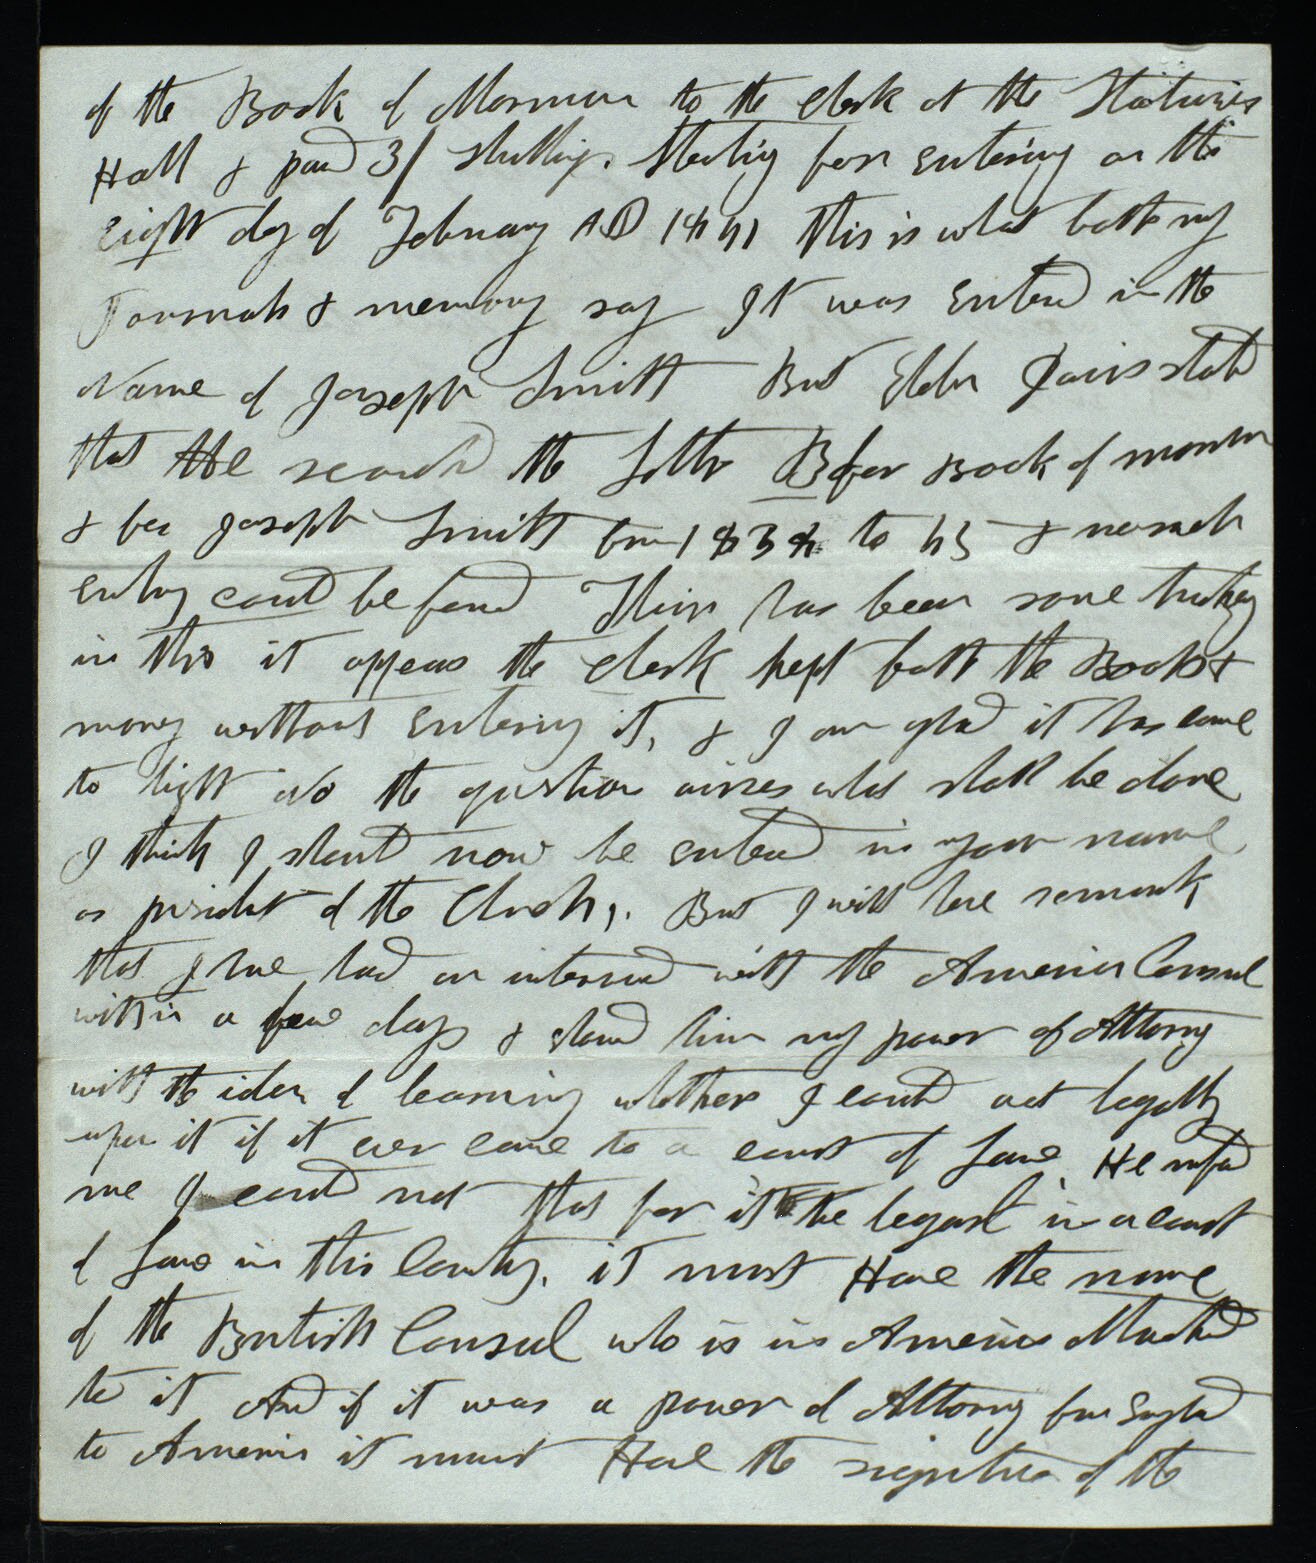 of the Book of Mormon to the clerk at the Stationers
Hall & paid 3/ shillings. Sterling for entering on the
eight day of February AD 1841 this is what both my
Journals & memory say It was entered in the
Name of Joseph Smith But Elder Davis stated
that He search the Letter B for Book of mormon
& for Joseph Smith from 1838 to 45 & no such
entry could be found Their has been some trickery
in this it appears the clerk kept both the Books &
money without entering it, & I am glad it has come
to light No the question arises what shall be done
I think I should now be entered in your name
as president of the Church,. But I will here remark
that I have had an interview with the American Consul
within a few days & showed him my power of Attorny
with the idea of learning whether I could act legally
upon it if it ever came to a court of Law. He
me I could not that for it to be legal in a court
of Law in this Country. it must Have the name
of the British Consul who is in America Attached
to it And if it was a power of Attorny from England
to America it must Have the signature of the